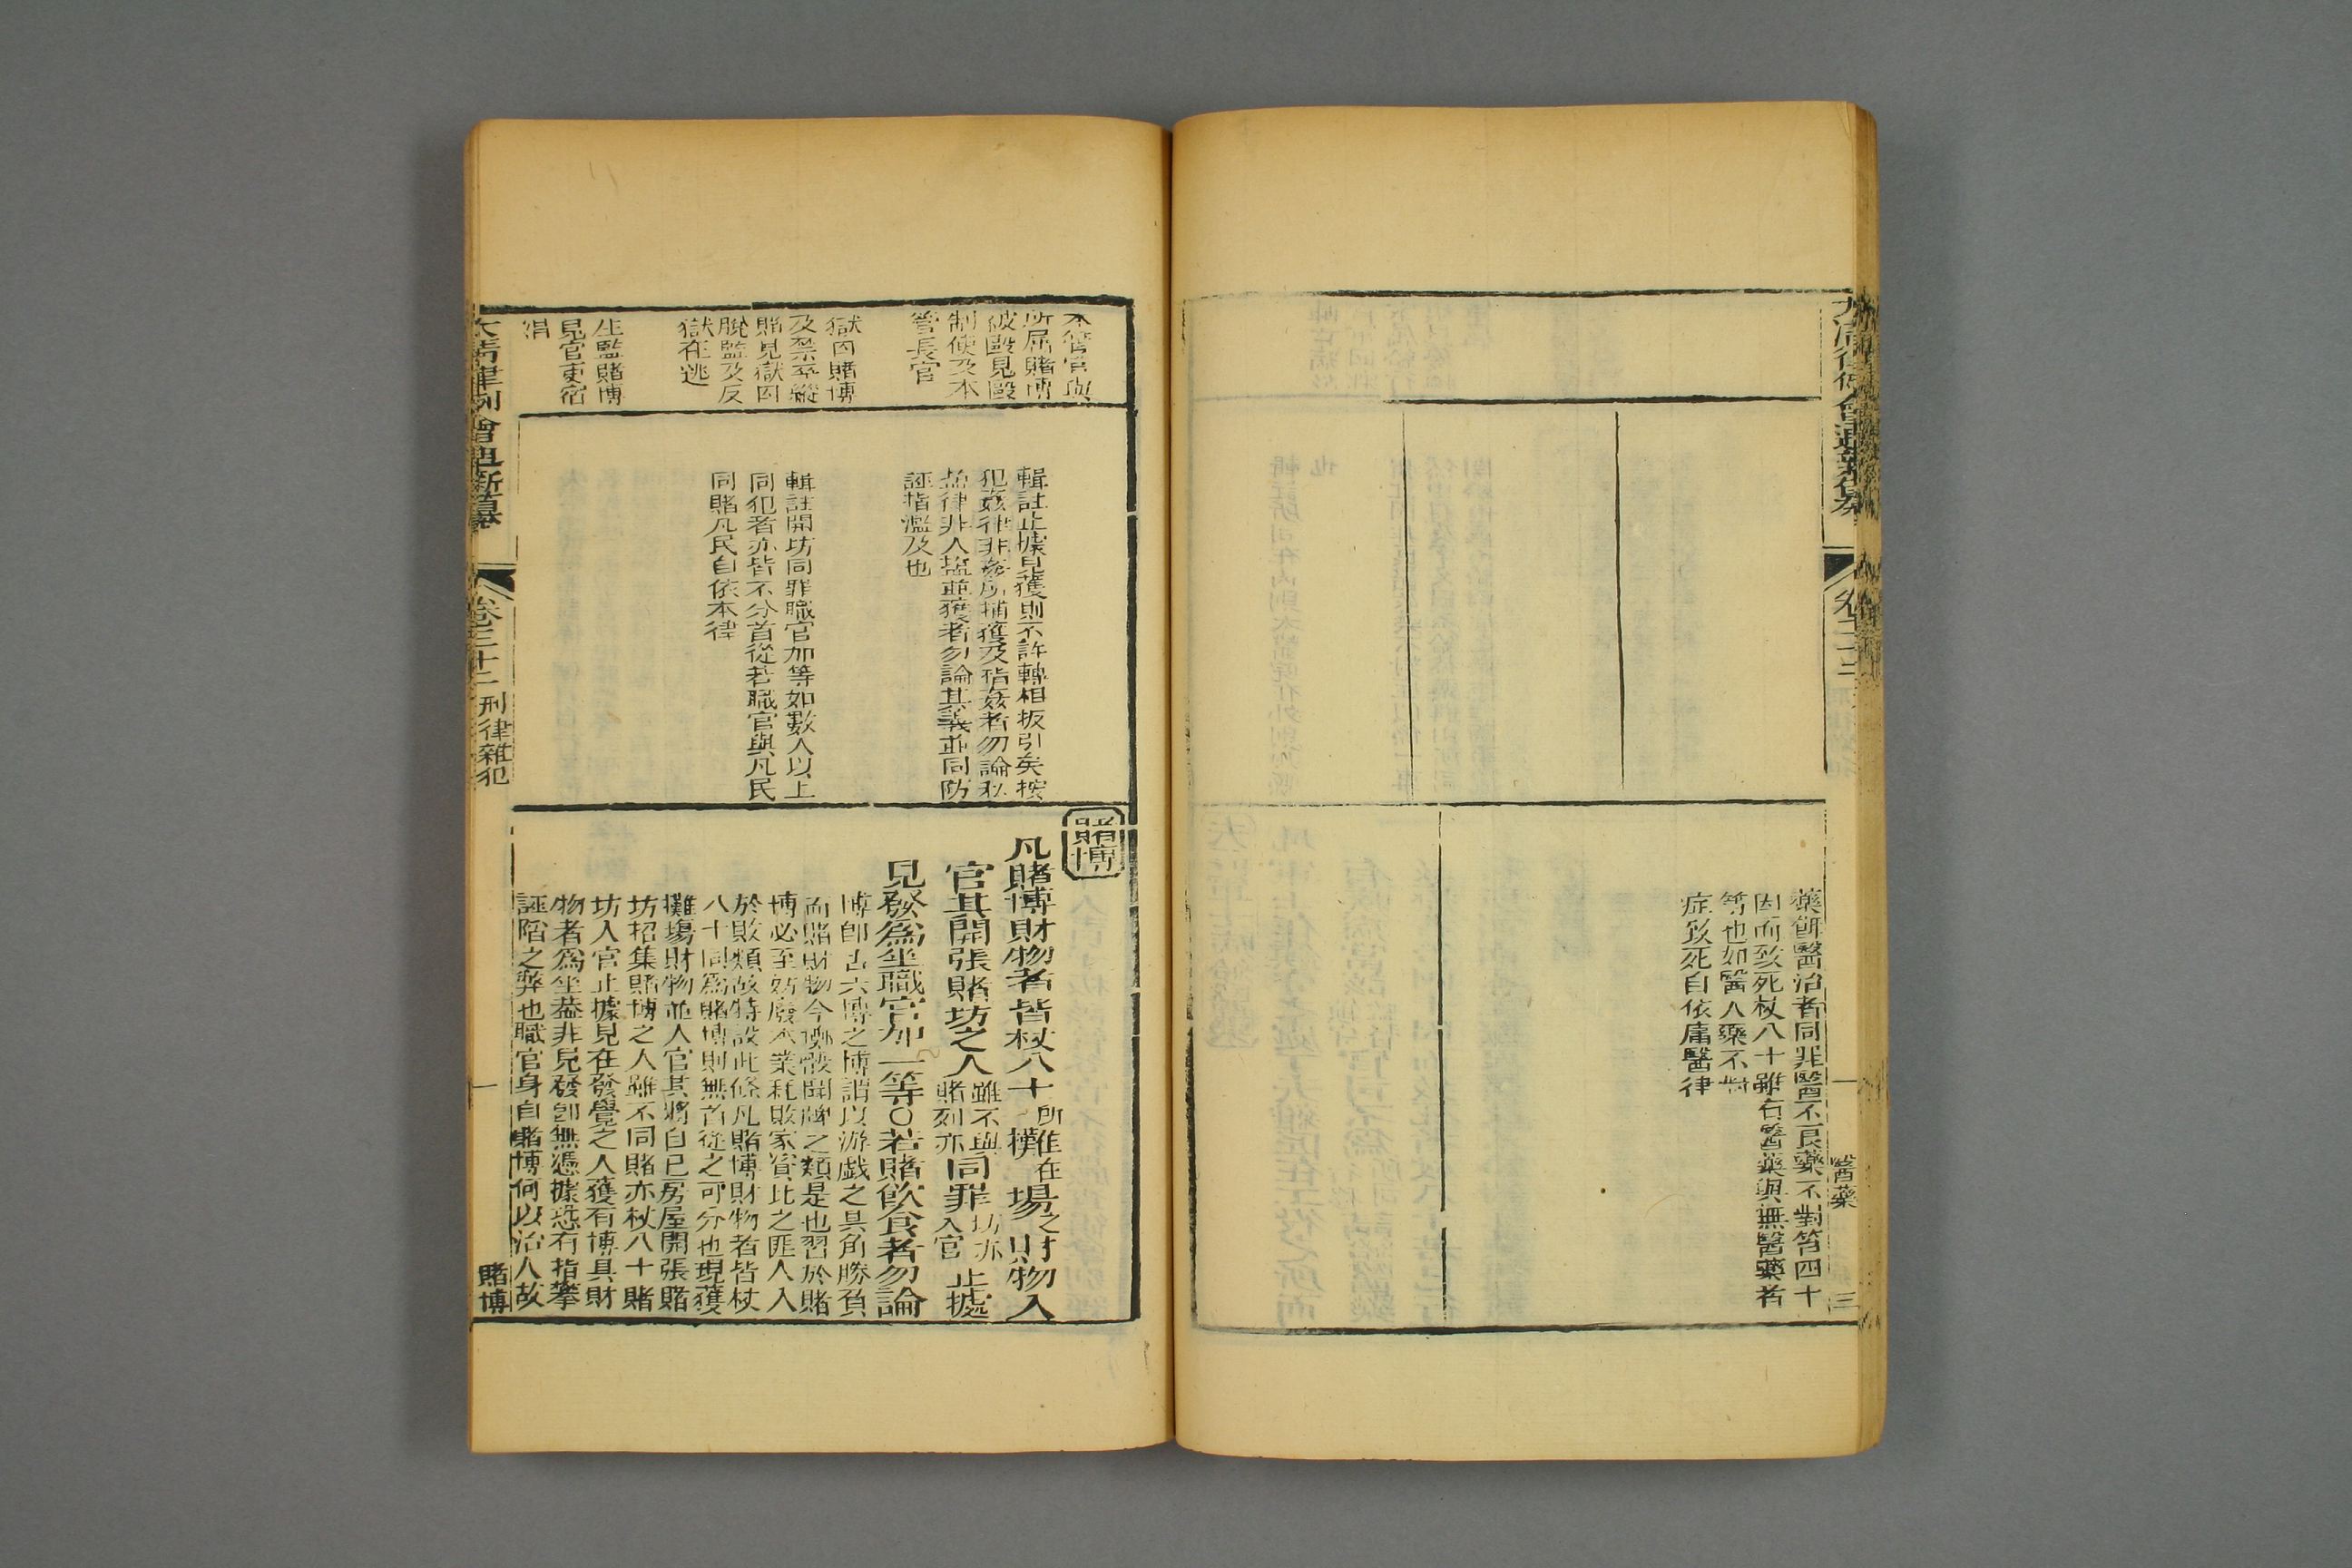 藥餌醫治者同非醫不良藥不對笞四十
因而致死杖八十雖有醫藥與無醫藥者
等也如醫人藥不對
症致死自依庸醫律
醫藥
三
本管官與
所屬賭博
被毆見毆
制使及本
管長官
獄囚賭博
及禁卒縱
賭見獄囚
脫監及反
獄在逃
生監賭博
見官吏宿
娼
輯註止據見獲則不許轉相扳引矣按
犯姦律非姦所捕獲及指姦者勿論私
鹽律非人鹽並獲者勿論其義並同防
誣指濫及也
輯註開坊同罪職官加等如數人以上
同犯者亦皆不分首從若職官與凡民
同賭凡民自依本律
賭博
凡賭博財物者皆杖八十所攤在場之財物入
官其開張賭坊之人雖不與賭列亦同罪坊亦入官止據
見發為坐職官加一等○若賭飲食者勿論
博即古六博之博謂以游戲之具角勝負
而賭財物今擲骰鬬牌之類是也習於賭
博必至妨廢本業耗敗家資比之匪人入
於敗類故特設此條凡賭博財物者皆杖
八十同為賭博則無首從之可分也現獲
攤場財物並入官其將自已房屋開張賭
坊招集賭博之人雖不同賭亦杖八十賭
坊入官止據見在發覺之人獲有博具財
物者為坐葢非見發卽無憑據恐有指攀
誣陷之弊也職官身自賭博何以治人故
大清律例會通新纂
卷三十二
刑律雜犯
一
賭博